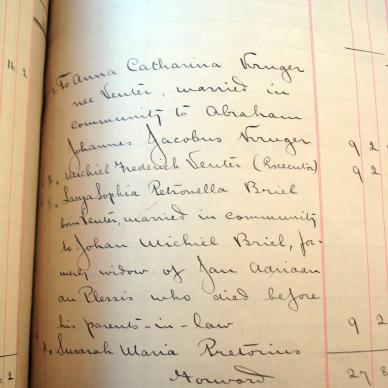 16 2
1. To Anna Catharina Kruger
nee Venter, married in
community to Abraham
Johannes Jacobus Kruger 9 2
2. Michiel Frederich Venter (Executor) 9 2
3. Sasya Sophia Petronella Briel
born Venter, married in community
to Johan Michiel Briel, for-
merly widow of Jan Adriaan
du Plessis who died before
his parents-in-law 9 2
4. Susarah Maria Pretorius
Forward 27 8
2